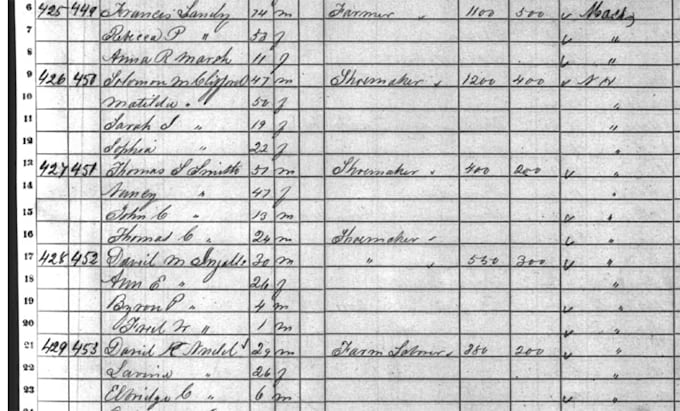 6 425 449 Francis Landy 74 m Farmer 1100 500 Mass
7 Rebecca P " 53 f "
8 Anna R Marsh 11 f "
9 426 450 Solomon M Clifford 47 m Shoemaker 1200 400 N H
10 Matilda " 50 f "
11 Sarah J " 19 f "
12 Sophia " 22 f "
13 427 451 Thomas S Smith 51 m Shoemaker 400 200 "
14 Nancy " 47 f "
15 John C " 13 m "
16 Thomas C " 24 m Shoemaker "
17 428 452 David M Ingalls 30 m " 550 300 "
18 Ann E " 26 f "
19 Byron P " 4 m "
20 Fred " 1 m "
21 429 453 David K 29 m Farm Laborer 350 200 "
22 Lavina " 26 f "
23 Elbridge C " 6 m "